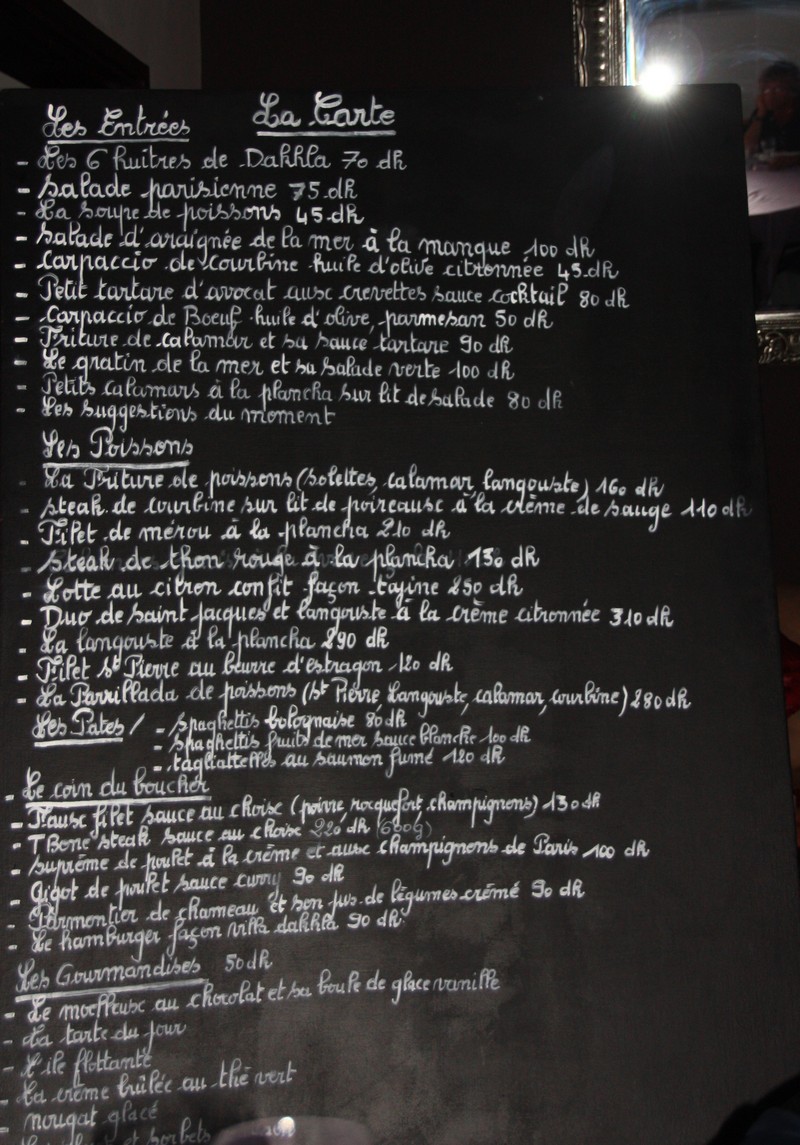 La Carte
Les Entrées
- Les 6 huîtres de Dakhla 70 dh
- Salade parisienne 75 dh
- La soupe de poissons 45 dh
- Salade d'araignée de la mer à la mangue 100 dh
- Carpaccio de courbine huile d'olive citronnée 45 dh
- Petit tartare d'avocat aux crevettes sauce cocktail 80 dh
- Carpaccio de Boeuf huile d'olive, parmesan 50 dh
- Friture de calamar et sa sauce tartare 90 dh
- Le gratin de la mer et sa salade verte 100 dh
- Petits calamars à la plancha sur lit de salade 80 dh
- Les suggestions du moment
Les Poissons
- La Friture de poissons (solettes, calamar, langouste) 160 dh
- Steak de courbine sur lit de poireaux à la crème de sauge 110 dh
- Filet de mérou à la plancha 210 dh
- Steak de thon rouge à la plancha 130 dh
- Lotte au citron confit façon tajine 250 dh
- Duo de Saint Jacques et langouste à la crème citronnée 310 dh
- La langouste à la plancha 290 dh
- Filet St Pierre au beurre d'estragon 120 dh
- La Parrillada de poissons (St Pierre, Langouste, calamar, courbine) 280 dh
Les Pates / - Spaghettis bolognaise 80 dh
- Spaghettis fruits de mer sauce blanche 100 dh
- tagliattelles au saumon fumé 120 dh
- Le coin du boucher
- Faux filet sauce au choix (poivre, rocquefort, champignons) 130 dh
- T Bone steak sauce au choix 220 dh (600g)
- Suprême de poulet à la crème et aux champignons de Paris 100 dh
- Gigot de poulet sauce curry 90 dh
- Parmentier de chameau et son jus de légumes crémé 90 dh
- Le hamburger façon villa dakhla 90 dh
Les Gourmandises 50 dh
- Le moelleux au chocolat et sa boule de glace vanille
- La tarte du jour
- L'ile flottante
- La crème brûlée au thé vert
- nougat glacé
et sorbets